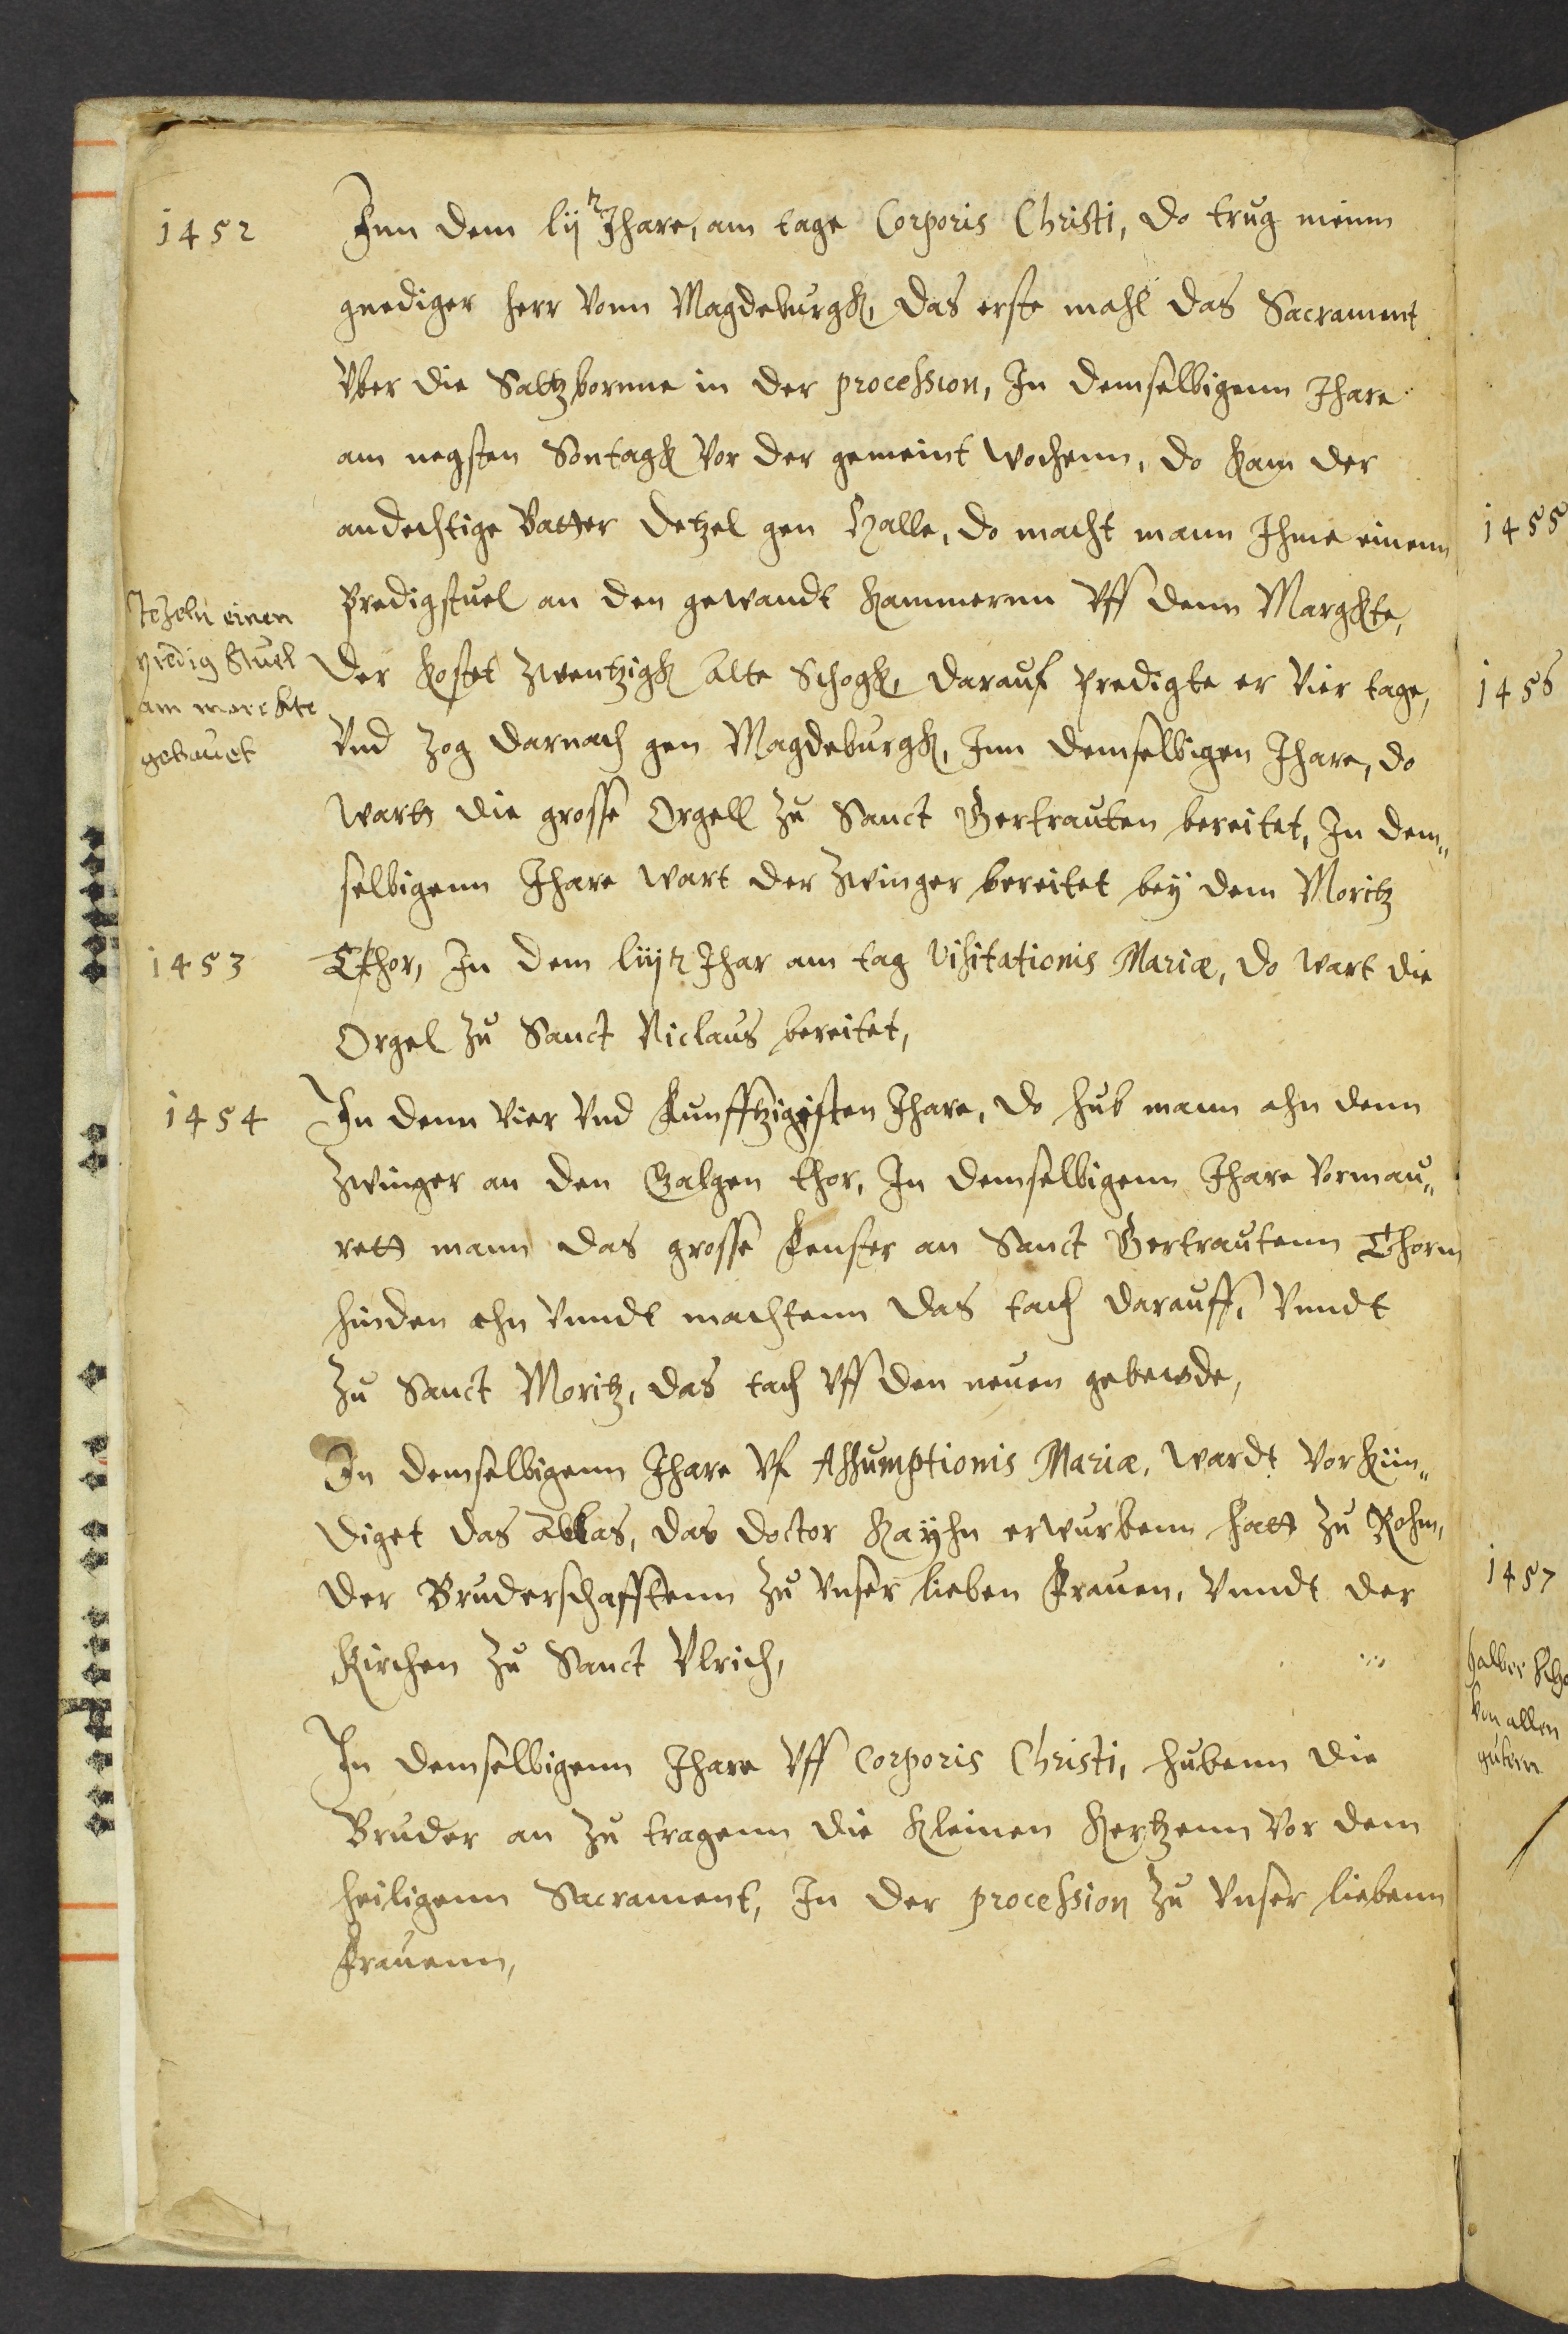 1452
Inn dem lij Jhare, am tage Corporis Christi, do trug meinn
gnediger herr vonn Magdeburgk, das erste mahl das Sacrament
vber die Saltzbornne in der procession, In demselbigenn Jhare
am negsten Sontagk vor der gemeint wochenn, do kam der
andechtige Vatter detzel gen Halle, do macht mann Ihme einenn
Predigstuel an den gewandt kammernn vff denn Margkte,
der kostet zwentzigk alte Schogk, darauf predigte er vier tage,
vnd zog darnach gen Magdeburgk, Inn demselbigen Jhare, do
wartt die grosse Orgell zu Sanct Gertrauten bereitet, In dem„
selbigenn Jhare wart der Zwinger bereitet bey dem Moritz
Tezeln einen
predig stuel
am marckte
gebauet
1453
Thor, In dem liij Jhar am tag Visitationis Mariæ, do wart die
Orgel zu Sanct Niclaus bereitet,
1454
In denn vier vnd funfftzigisten Jhare, do hub mann ahn denn
Zwinger an den Galgen thor, In demselbigenn Jhare vormau„
rett mann das grosse fenster an Sanct Gertrautenn Thorm
hinden ahn vnndt machtenn das tach darauff, vnndt
zu Sanct Moritz, das tach vff den neuen gebewde,
In demselbigenn Jhare vf Assumptionis Mariæ, wardt vorkün„
diget das ablas, das doctor Kayhn erwurbenn hatt zu Rohm,
der Bruderschafftenn zu vnser lieben frauen, vnndt der
Kirchen zu Sanct Vlrich,
In demselbigenn Jhare vff Corporis Christi, hubenn die
Bruder an zu tragenn die kleinen kertzenn vor dem
heiligenn Sacrament, In der procession zu vnser liebenn
frauenn,
1455
1456
1457
halber
von allen
gutern